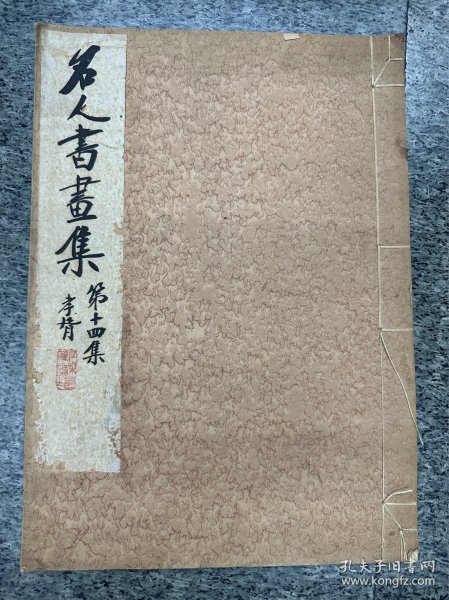 名人書畫集
第十四集
孝胥
孔夫子旧书网
www.kongfz.com